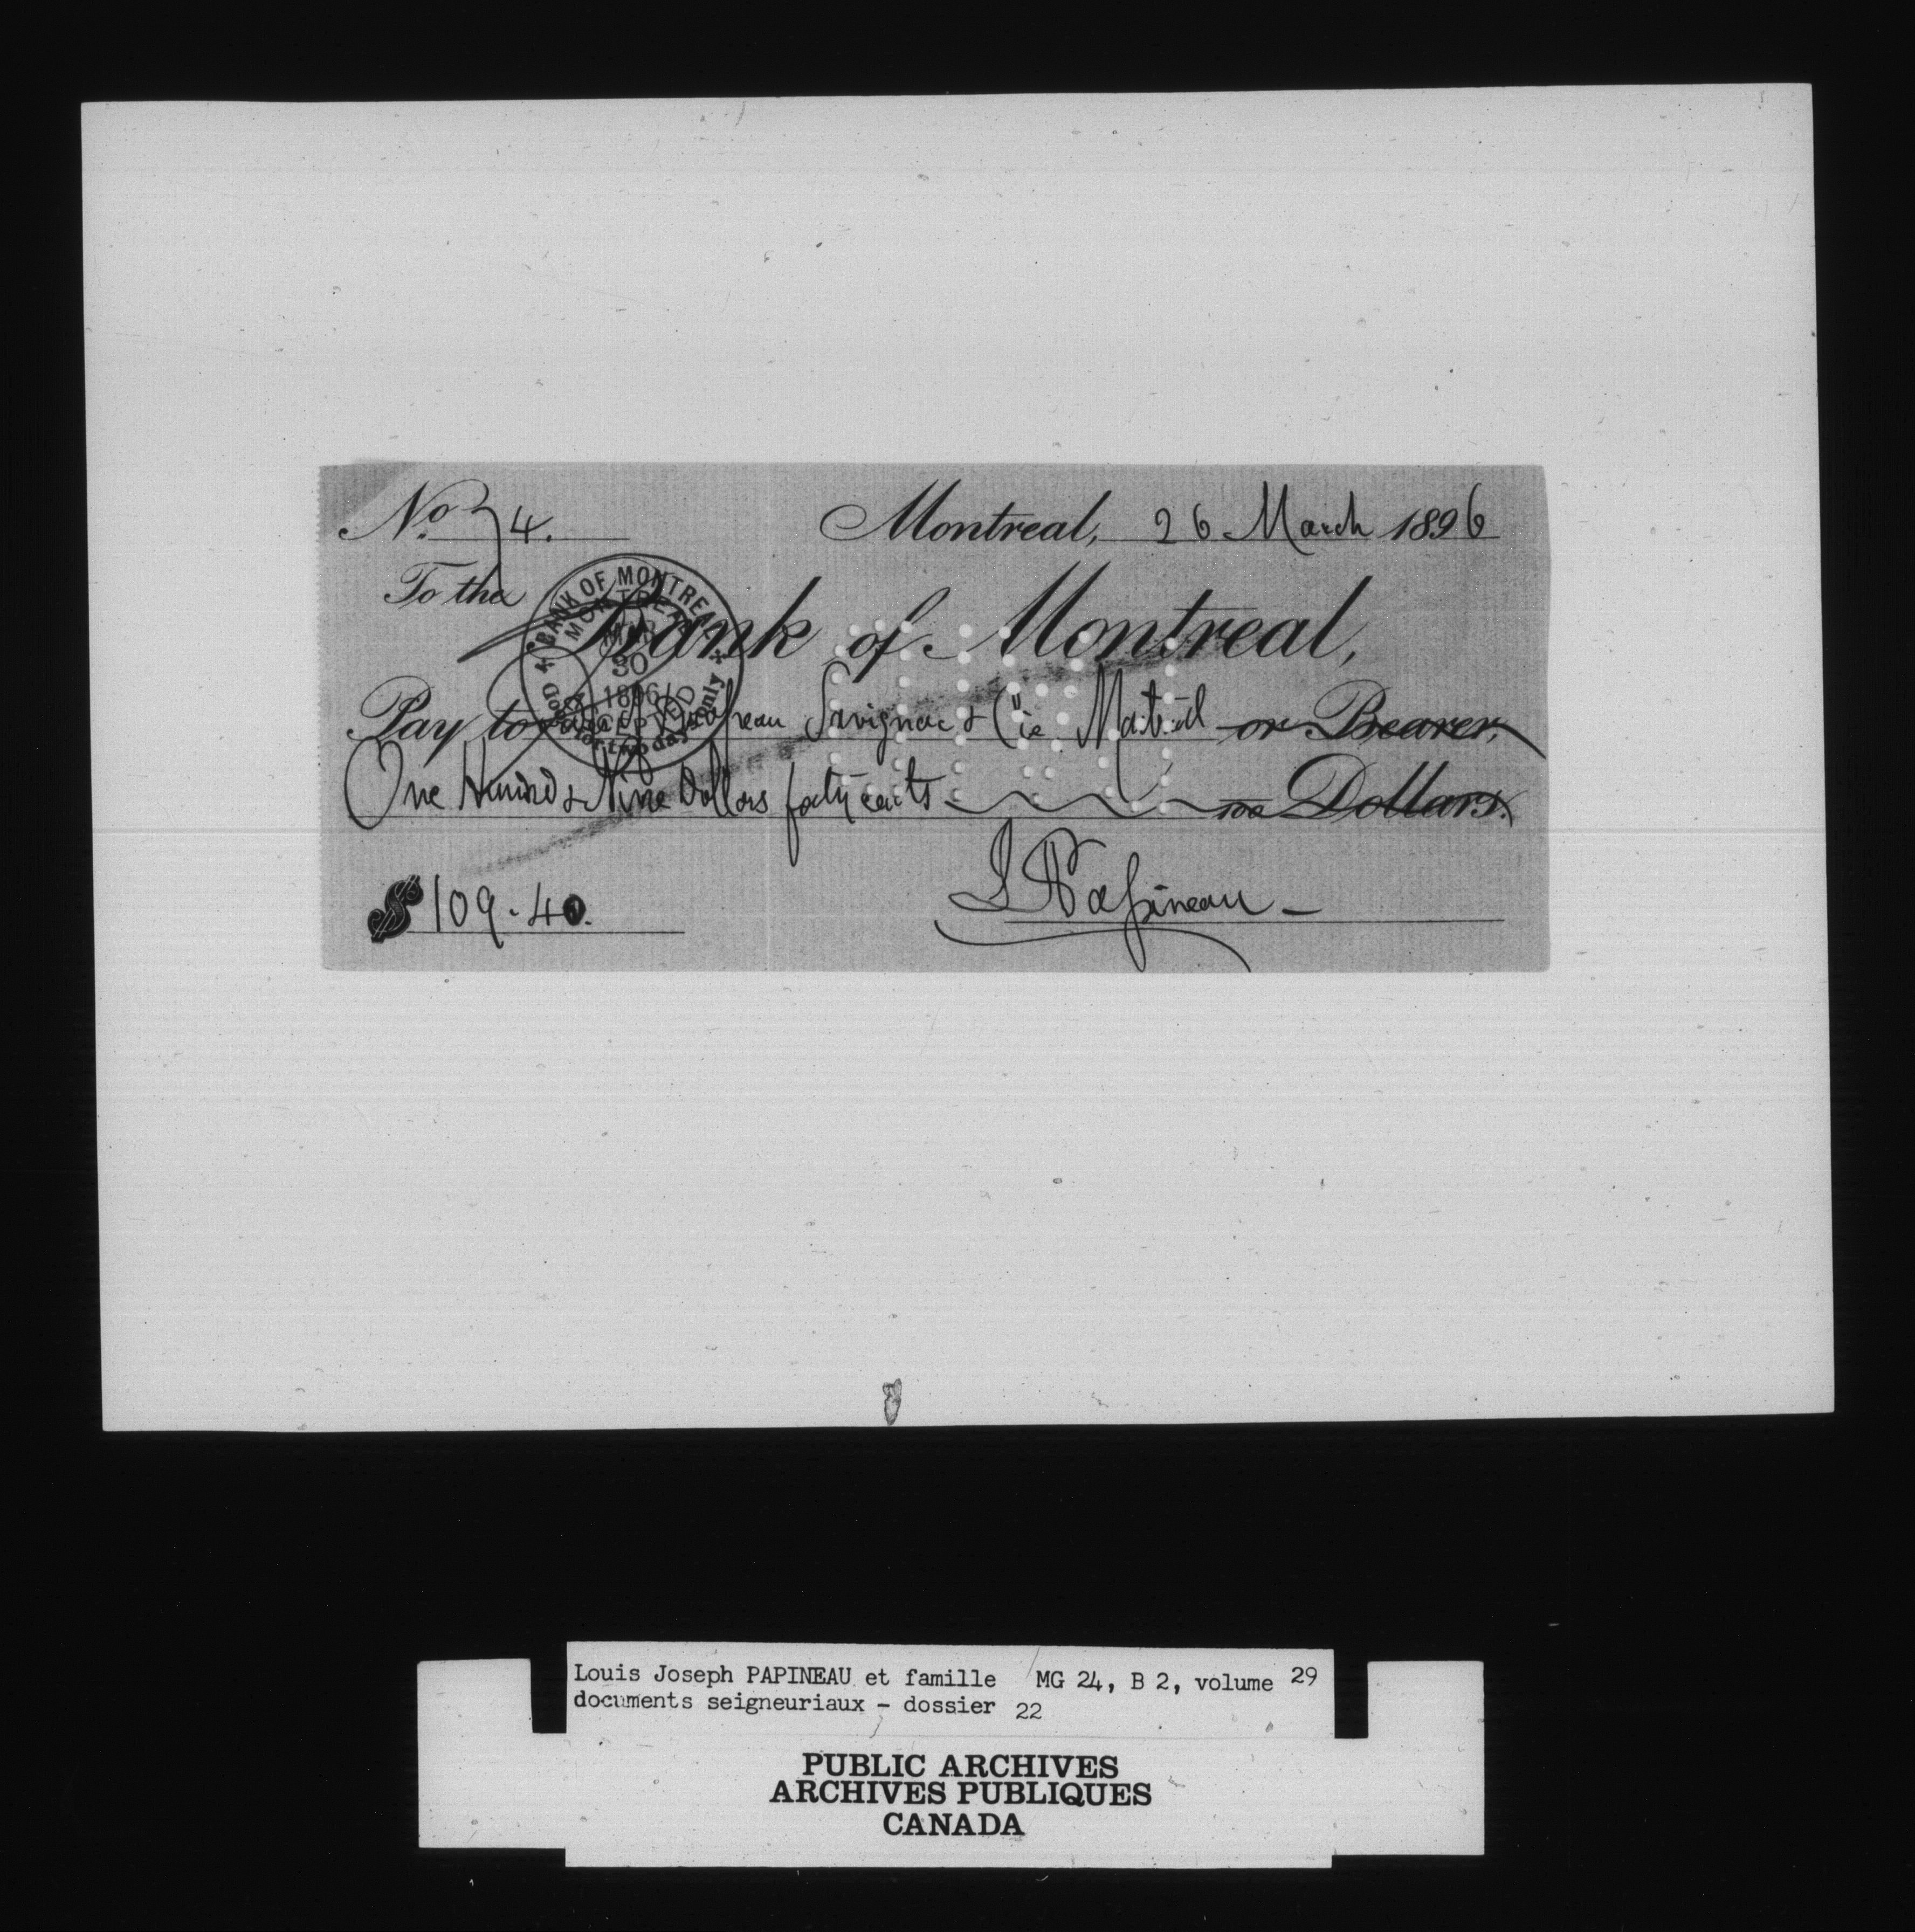 No. 74.
Montreal, 26 March 1896
To the
Bank of Montreal,
BANK OF MONTREAL
MONTREAL
MAR
30
1896
ACCEPTED
Good for two days only
Pay to Savignac & Cie or Bearer,
One Hundred & Nine Dollars forty cents 100 Dollars.
$ 109.40.
L J Papineau
Louis Joseph PAPINEAU et famille MG 24, B 2, volume 29
documents seigneuriaux - dossier 22
PUBLIC ARCHIVES
ARCHIVES PUBLIQUES
CANADA